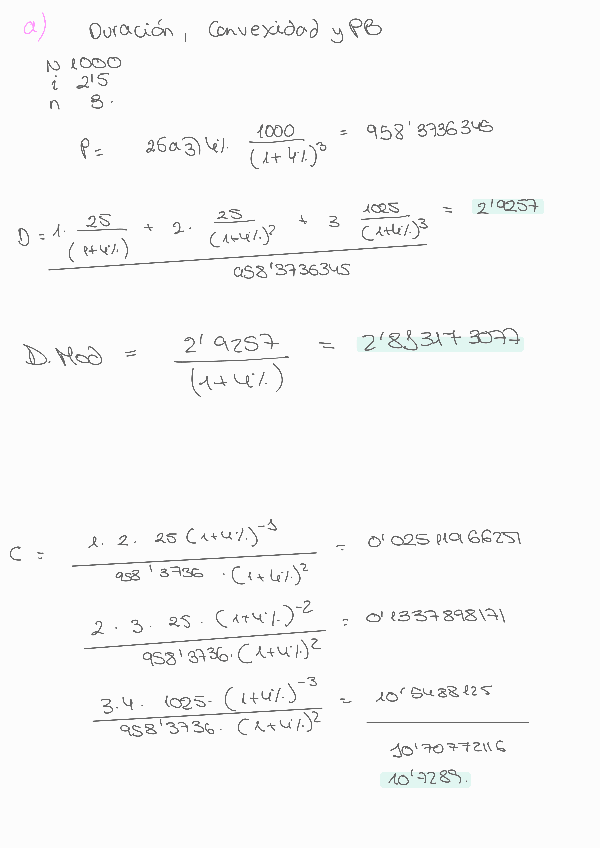 a) Duración, Convexidad y PB
N 1000
i 2'5
n 3.
P = 25 a 3) 4% 1000 / (1+4%)^3 = 958'3736345
D = 1· 25 / (1+4%) + 2· 25 / (1+4%)^2 + 3 1025 / (1+4%)^3 = 2'9257
958'3736345
D. Mod = 2'9257 / (1+4%) = 2'813173077
C = 1. 2. 25 (1+4%)^-1 / 958'3736 · (1+4%)^2 = 0'02511966251
2 · 3 · 25 · (1+4%)^-2 / 958'3736 · (1+4%)^2 = 0'1337898171
3.4. 1025· (1+4%)^-3 / 958'3736 · (1+4%)^2 = 10'5488125
10'70772116
10'7289.